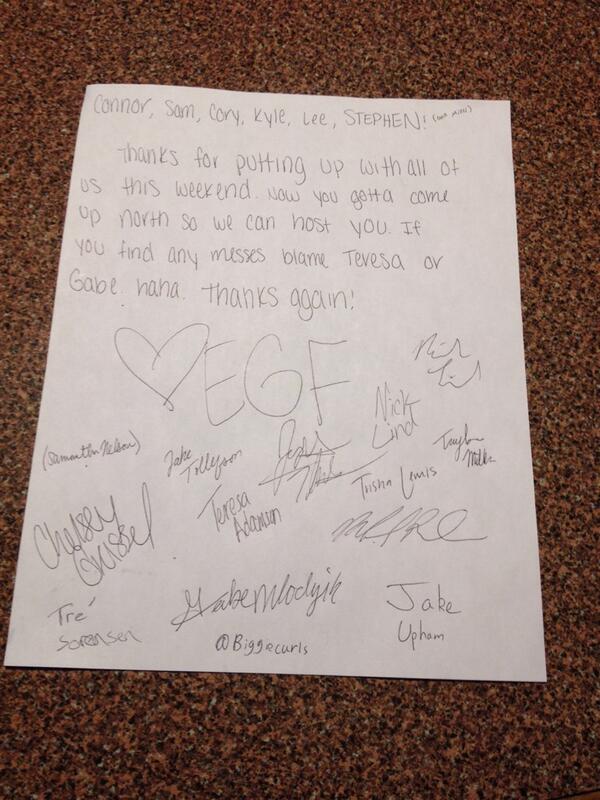 Connor, Sam, Cory, Kyle, Lee, STEPHEN!
Thanks for putting up with all of
us this weekend. Now you gotta come
up north so we can host you. If
you find any messes blame Teresa or
Gabe. haha. Thanks again!
EGF
Nick
Lind
(Samantha Nelson)
Jake
Tollefson
Trisha Lewis
Taylor
Teresa
Adamsen
Chelsey
Grissel
Tré
Sorensen
Gabe Mlodzik
@Biggecurls
Jake
Upham